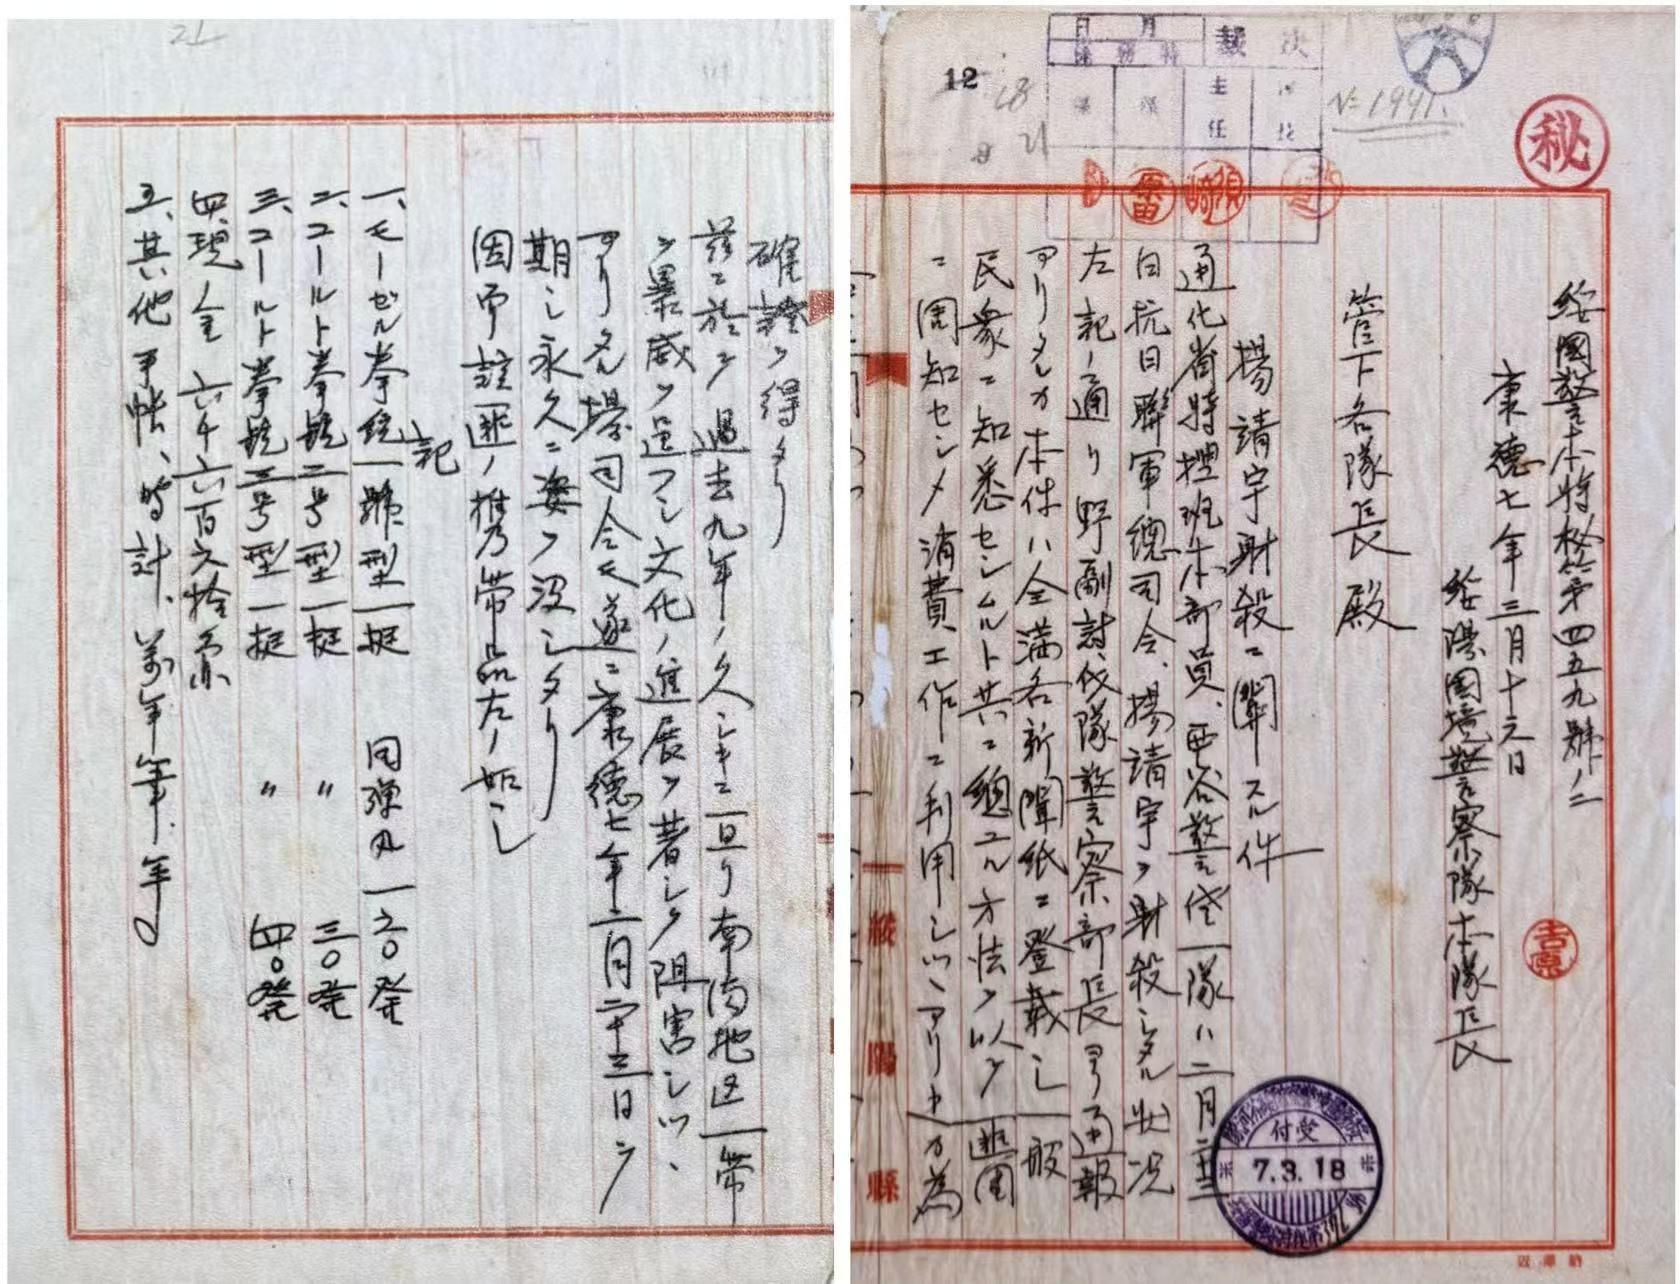 秘
12
18
21
No 1991.
決裁
月 日
特務係
主任
綏國警本特秘第四五九號ノ二
康德七年三月十六日
綏陽國境警察隊本隊長
吉原
管下各隊長殿
楊請宇射殺ニ關スル件
通化省特捜班本部員、西谷警佐一隊ハ二月二十三
日抗日聯軍總司令、楊請宇ヲ射殺シタル狀況
左記ノ通リ野副討伐隊警察部長ヨリ通報
アリタルカ本件ハ全滿各新聞紙ニ登載シ一般
民衆ニ知悉センムルト共ニ總ユル方法ヲ以テ匪團
ニ周知セシメ消費工作ニ利用シツヽアリ
受付
7.3.18
綏陽縣
21
確證ヲ得タリ
茲ニ於テ過去九年ノ久シキニ亘リ南滿地区一帯
ヲ暴威ヲ逞フシ文化ノ進展ヲ著シク阻害シツヽ
アリタル楊司令モ遂ニ康德七年二月二十三日ヲ
期シ永久ニ姿ヲ沒シタリ
因而該匪ノ携帯品左ノ如シ
記
一、モーゼル拳銃一號型一挺 同彈丸一六〇発
二、コールト拳銃二号型一挺 〃 三〇発
三、コールト拳銃三号型一挺 〃 四〇発
四、現金 六千六百六拾円
五、其ノ他手帳、時計、萬年筆、等